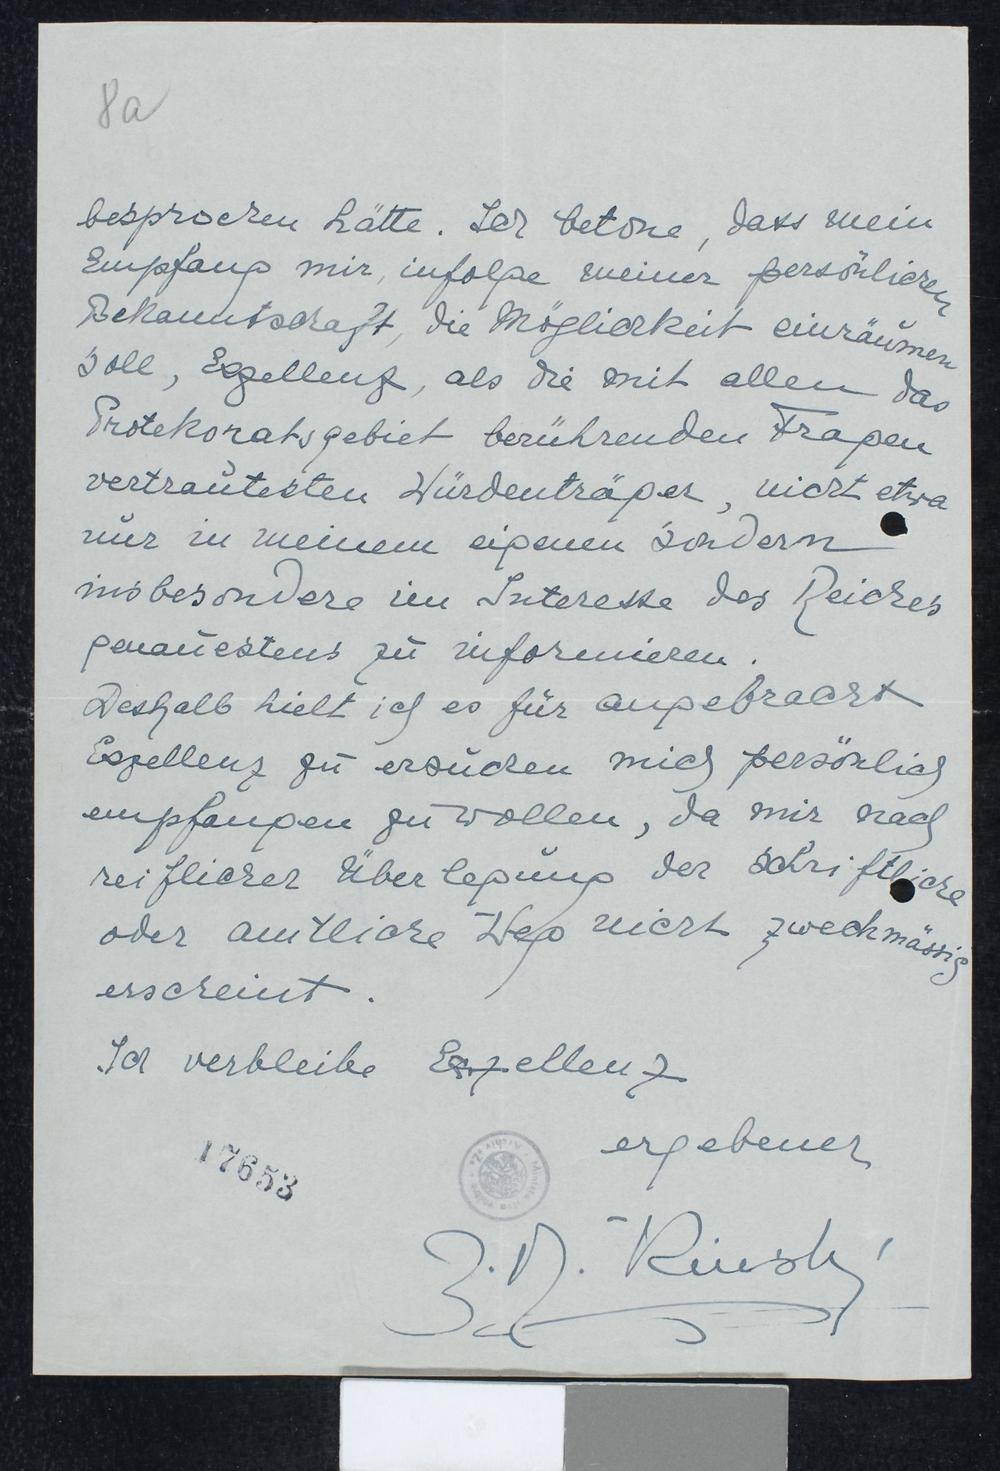 8a
besprochen hätte. Ich betone, dass mein
Empfang mir, infolge meiner persönlichen
Bekanntschaft, die Möglichkeit einräumen
soll, Exzellenz, als die mit allen das
Protekoratsgebiet berührenden Fragen
vertrautesten Würdenträger, nicht etwa
nur in meinem eigenen sondern
insbesondere im Interesse des Reiches
genauestens zu informieren.
Deshalb hielt ich es für angebracht
Exzellenz zu ersuchen mich persönlich
empfangen zu wollen, da mir nach
reiflicher Überlegung der schriftliche
oder amtliche Weg nicht zweckmässig
erscheint.
Ich verbleibe Exzellenz
ergebener
17653
Z. R. Kinský